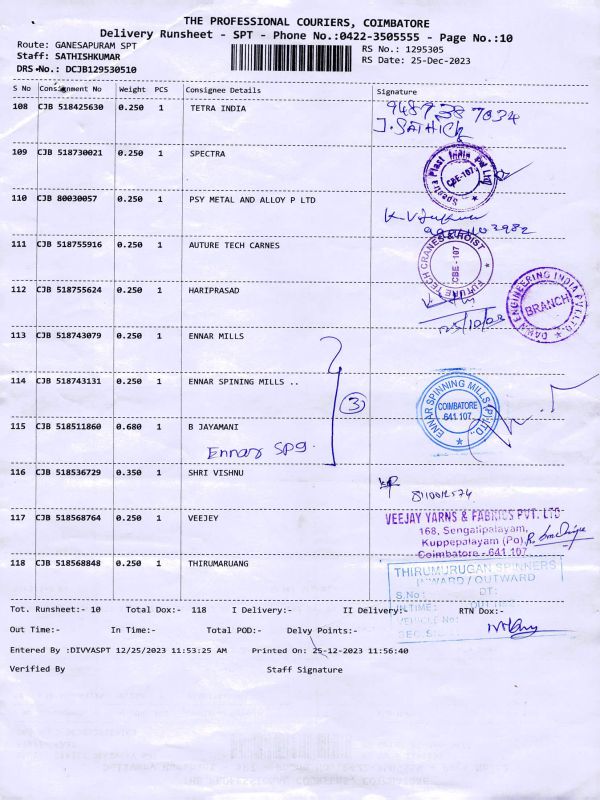 THE PROFESSIONAL COURIERS, COIMBATORE
Delivery Runsheet - SPT - Phone No.:0422-3505555 - Page No.:10
Route: GANESAPURAM SPT
RS No.: 1295305
Staff: SATHISHKUMAR
RS Date: 25-Dec-2023
DRS No.: DCJB129530510
S No Consignment No Weight PCS Consignee Details Signature
108 CJB 518425630 0.250 1 TETRA INDIA
J. SATHICK
109 CJB 518730021 0.250 1 SPECTRA
Spectra Plast India Pvt Ltd
CBE-107
110 CJB 80030057 0.250 1 PSY METAL AND ALLOY P LTD
111 CJB 518755916 0.250 1 AUTURE TECH CARNES
FUTURE TECH CRANES & HOIST
CBE-107
112 CJB 518755624 0.250 1 HARIPRASAD
ENGINEERING INDIA PVT.LTD.
BRANCH
113 CJB 518743079 0.250 1 ENNAR MILLS
114 CJB 518743131 0.250 1 ENNAR SPINING MILLS ..
3
ENNAR SPINNING MILLS (P) LTD.
COIMBATORE
641.107.
115 CJB 518511860 0.680 1 B JAYAMANI
Ennar Spg.
116 CJB 518536729 0.350 1 SHRI VISHNU
117 CJB 518568764 0.250 1 VEEJEY
VEEJAY YARNS & FABRICS PVT. LTD
168, Sengalipalayam,
Kuppepalayam (Po),
Coimbatore - 641 107
118 CJB 518568848 0.250 1 THIRUMARUANG
THIRUMURUGAN SPINNERS
INWARD / OUTWARD
S.No: DT:
IN TIME: OUT TIME
VEHICLE No:
Tot. Runsheet:- 10 Total Dox:- 118 I Delivery:- II Delivery:- RTN Dox:-
Out Time:- In Time:- Total POD:- Delvy Points:-
Entered By :DIVYASPT 12/25/2023 11:53:25 AM Printed On: 25-12-2023 11:56:40
Verified By Staff Signature